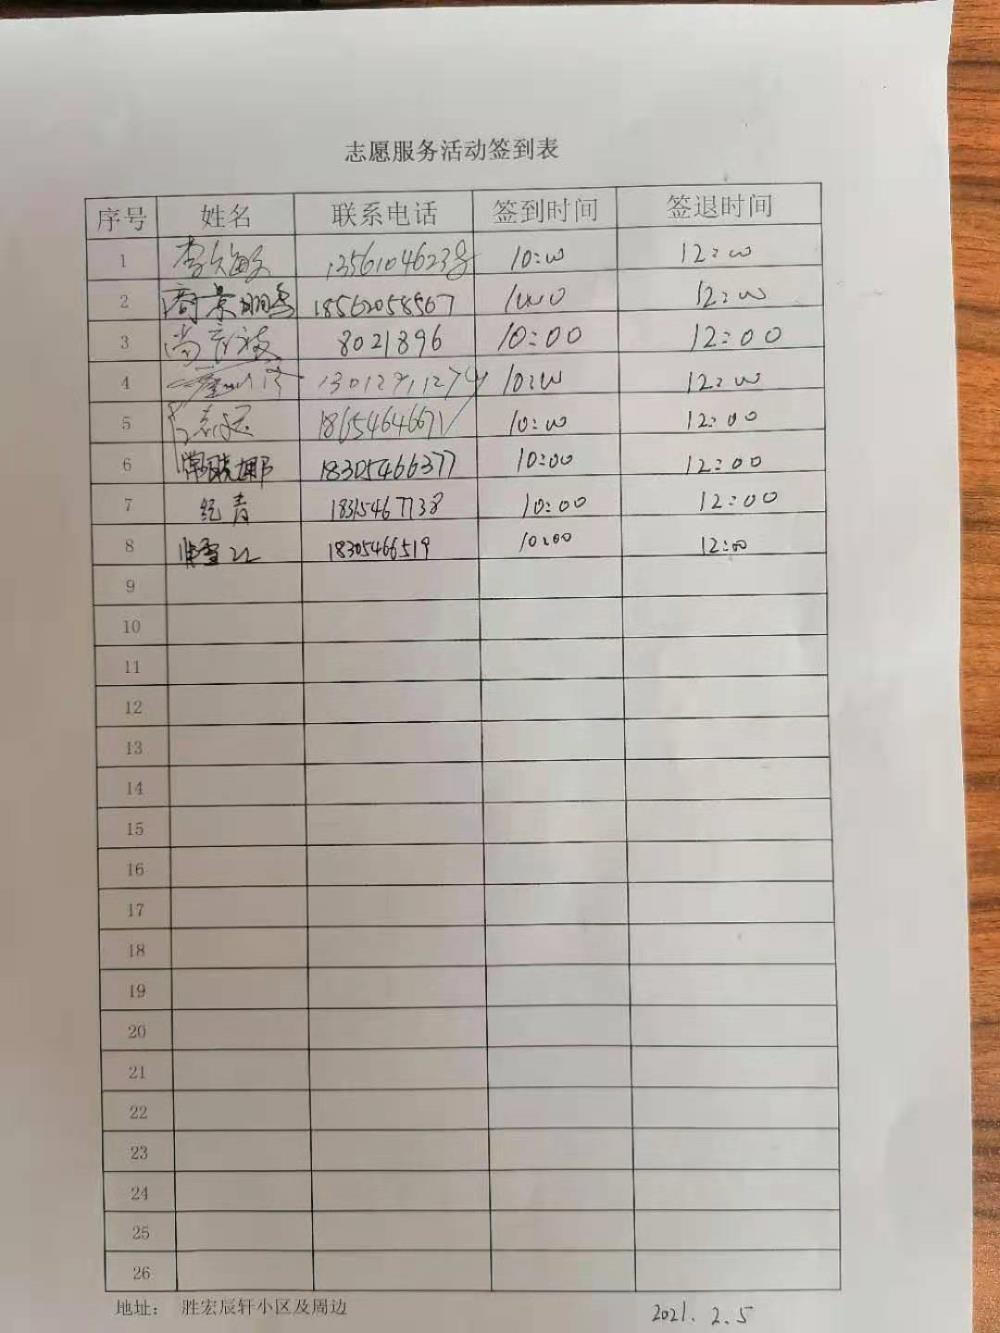 志愿服务活动签到表
序号 姓名 联系电话 签到时间 签退时间
1 10:00 12:00
2 18562058567 10:00 12:00
3 8021896 10:00 12:00
4 10:00 12:00
5 10:00 12:00
6 18305466377 10:00 12:00
7 纪青 18315467738 10:00 12:00
8 18305466519 10:00 12:00
9
10
11
12
13
14
15
16
17
18
19
20
21
22
23
24
25
26
地址： 胜宏辰轩小区及周边 2021.2.5